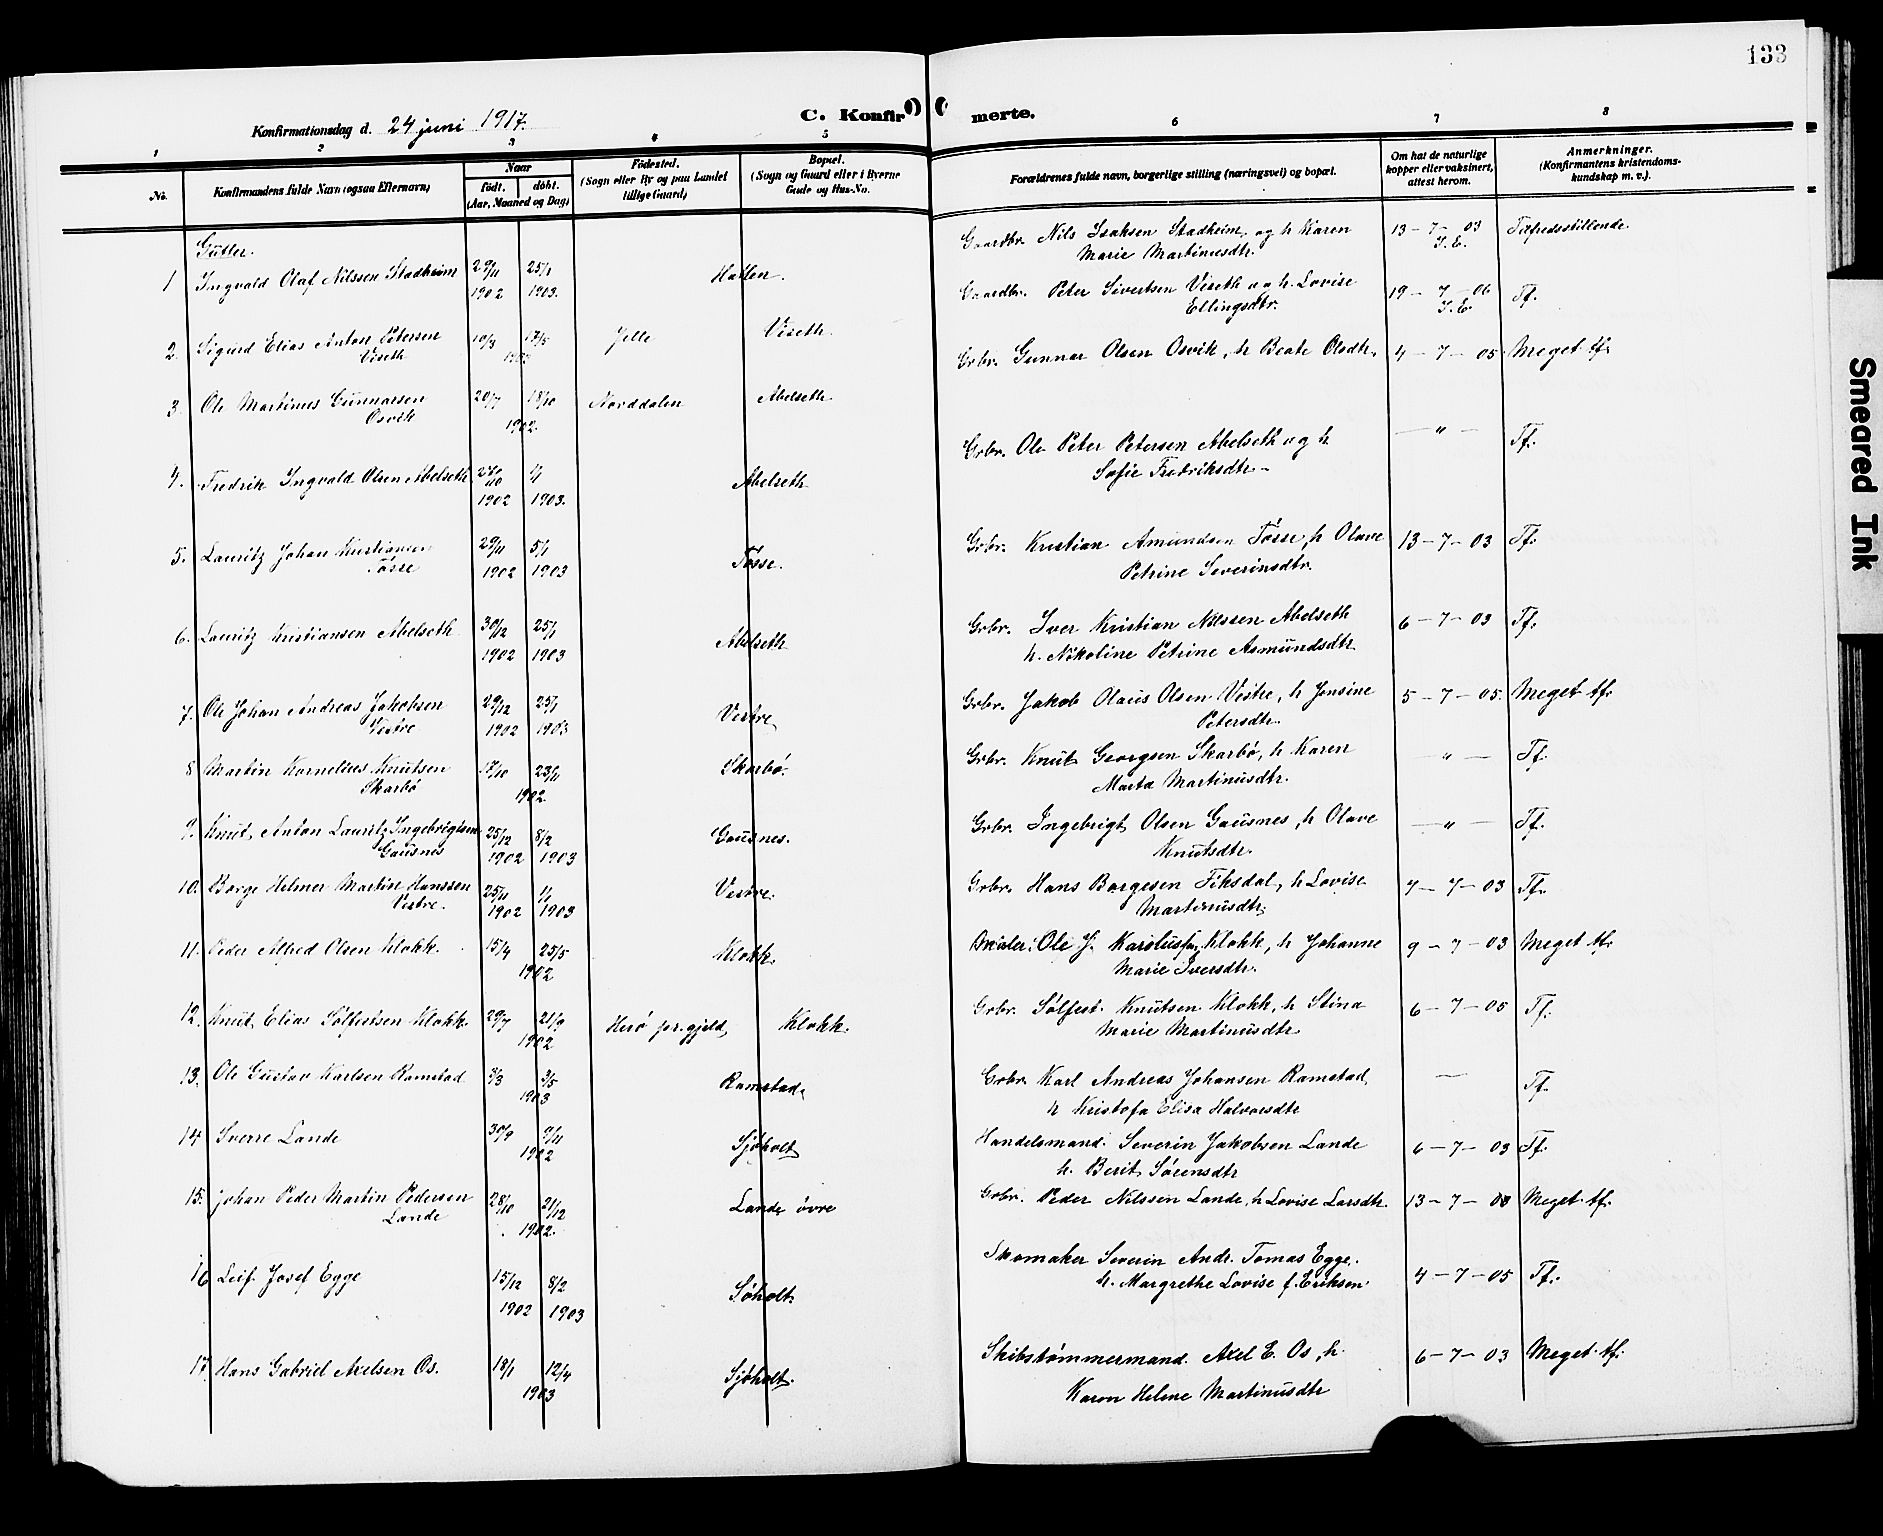 133
Konfirmationsdag d. 24 juni 1917.
C. Konfirmerte.
1 2 3 4 5 6 7 8
No.
Konfirmandens fulde Navn (ogsaa Efternavn)
Naar
födt. döbt.
(Aar, Maaned og Dag)
Födested.
(Sogn eller By og paa Landet
tillige Gaard)
Bopæl.
(Sogn og Gaard eller i Byerne
Gade og Hus-No.
Forældrenes fulde navn, borgerlige stilling (næringsvei) og bopæl.
Om hat de naturlige
kopper eller vaksinert,
attest herom.
Anmerkninger.
(Konfirmantens kristendoms-
kundskap m. v.).
Gutter.
1 Ingvald Olaf Nilssen Stadheim 29/11 25/1 Hatlen.
1902 1903.
Gaardbr. Nils Isaksen Stadheim og h Karen 13-7-03 Tilfredsstillende.
Marie Martinusdtr. I.E.
2. Sigurd Elias Anton Petersen 10/3 Jelle Viseth.
Viseth
Gaardbr. Peter Sivertsen Viseth og h. Lovise 19-7-06 Tf.
Ellingsdtr. I.E.
3. Ole Martinus Gunnarsen 20/7 18/10 Norddalen Abelseth
Osvik 1902.
Grbr. Gunnar Olsen Osvik, h Beate Olsdtr. 4-7-05 Meget tf.
4. Fredrik Ingvald Olsen Abelseth 1/1 Abelseth
1902 1903.
Grbr. Ole Peter Petersen Abelseth og h — " — Tf.
Sofie Fredriksdtr.
5. Lauritz Johan Kristiansen 29/11 5/1 Tøsse.
Tøsse 1902 1903
Grbr. Kristian Amundsen Tøsse, h Olave 13-7-03 Tf.
Petrine Severinsdtr.
6. Lauritz Kristiansen Abelseth 30/12 25/1 Abelseth
1902 1903
Grbr. Iver Kristian Nilssen Abelseth 6-7-03 Tf.
h. Nikoline Petrine Asmundsdtr
7. Ole Johan Andreas Jakobsen 29/12 25/1 Vestre
Vestre 1902 1903
Grbr. Jakob Olaus Olsen Vestre, h Jensine 5-7-05. Meget tf.
Petersdtr.
8 Martin Kornelius Knutsen 23/11 Skarbø.
Skarbø 1902.
Grbr. Knut Georgsen Skarbø, h Karen — " — Tf.
Marta Martinusdtr.
9. Knut Anton Lauritz Ingebrigtsen 25/12 8/2 Gausnes.
Gausnes 1902 1903
Grbr. Ingebrigt Olsen Gausnes, h Olave — " — Tf.
Knutsdtr.
10. Borge Helmer Martin Hanssen 25/11 1/1 Vestre.
Vestre. 1902 1903
Grbr. Hans Borgesen Fiksdal, h Lovise 7-7-03 Tf.
Martinusdtr.
11. Peder Alfred Olsen Klokk. 15/4 25/5 Klokk.
1902
Ole J. Klokk, h Johanne 9-7-03 Meget tf.
Marie Iversdtr.
12. Knut Elias Sølfestsen Klokk. 29/7 21/9 Herø pr.gjeld, Klokk.
1902
Grbr. Sølfest Knutsen Klokk, h Stina 6-7-05 Tf.
Marie Martinusdtr
13. Ole Gustav Karlsen Ramstad 3/3 3/5 Ramstad.
1903
Grbr. Karl Andreas Johansen Ramstad, — Tf.
h Kristofa Elisa Halvorsdtr
14 Sverre Lande 30/9 Sjøholt
1902
Handelsmand. Severin Jakobsen Lande 6-7-03 Tf.
h. Berit Sørensdtr
15. Johan Peder Martin Pedersen 28/10 21/12 Lande øvre
Lande 1902.
Grbr. Peder Nilssen Lande, h Lovise Larsdtr. 13-7-03 Meget tf.
16 Leif Josef Egge 15/12 8/2 Søholt.
1902 1903
Skomaker Severin Andr. Tomas Egge. 4-7-05 Tf.
h. Margrethe Lovise f. Eriksen
17. Hans Gabriel Axelsen Os. 18/1 12/4 Sjøholt.
1903
Skibstømmermand. Axel E. Os, h. 6-7-03 Meget tf.
Karen Helene Martinusdtr
Smeared Ink